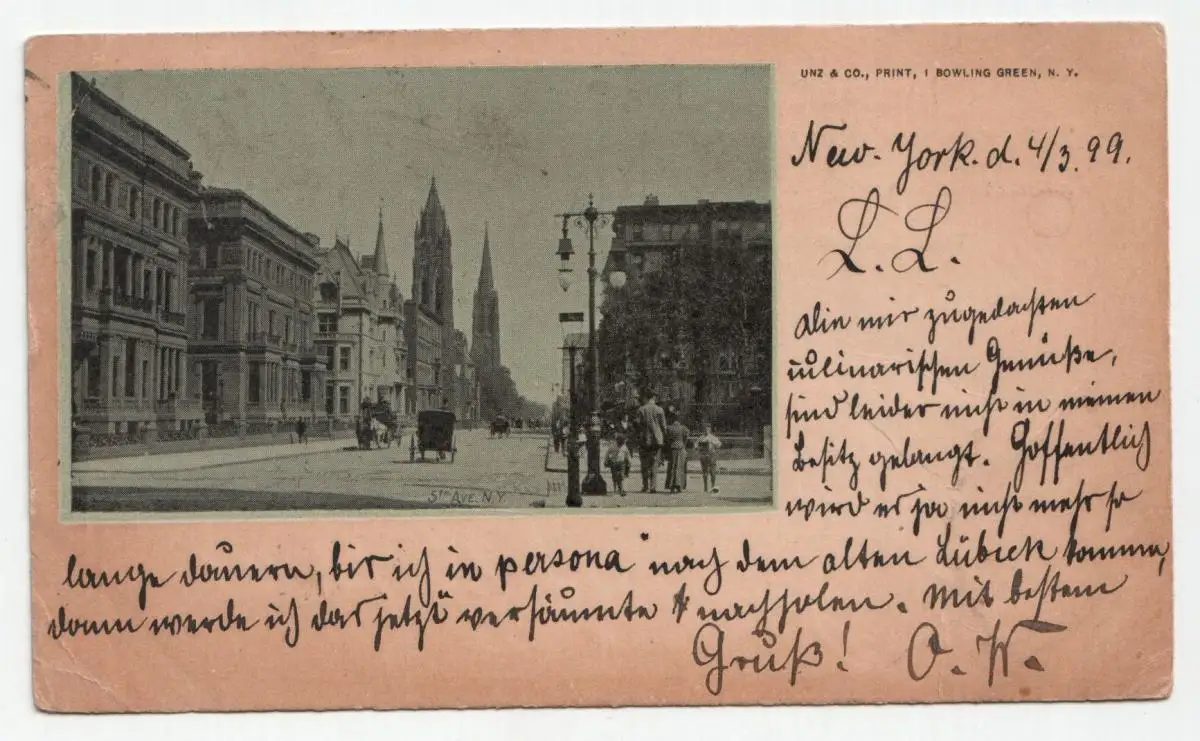 UNZ & CO., PRINT, 1 BOWLING GREEN, N. Y.
New-York. d. 4/3. 99.
L. L.
Die mir zugedachten
culinarischen Genüße,
sind leider nicht in meinen
Besitz gelangt. Hoffentlich
wird es ja nicht mehr so
lange dauern, bis ich in persona" nach dem alten Lübeck komme,
dann werde ich das jetzt versäumte nachholen. Mit bestem
Gruß! O. K.
5TH AVE. N.Y.